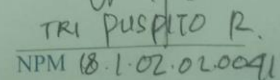 TRI PUSPITO R.
NPM 18.1.02.02.0041